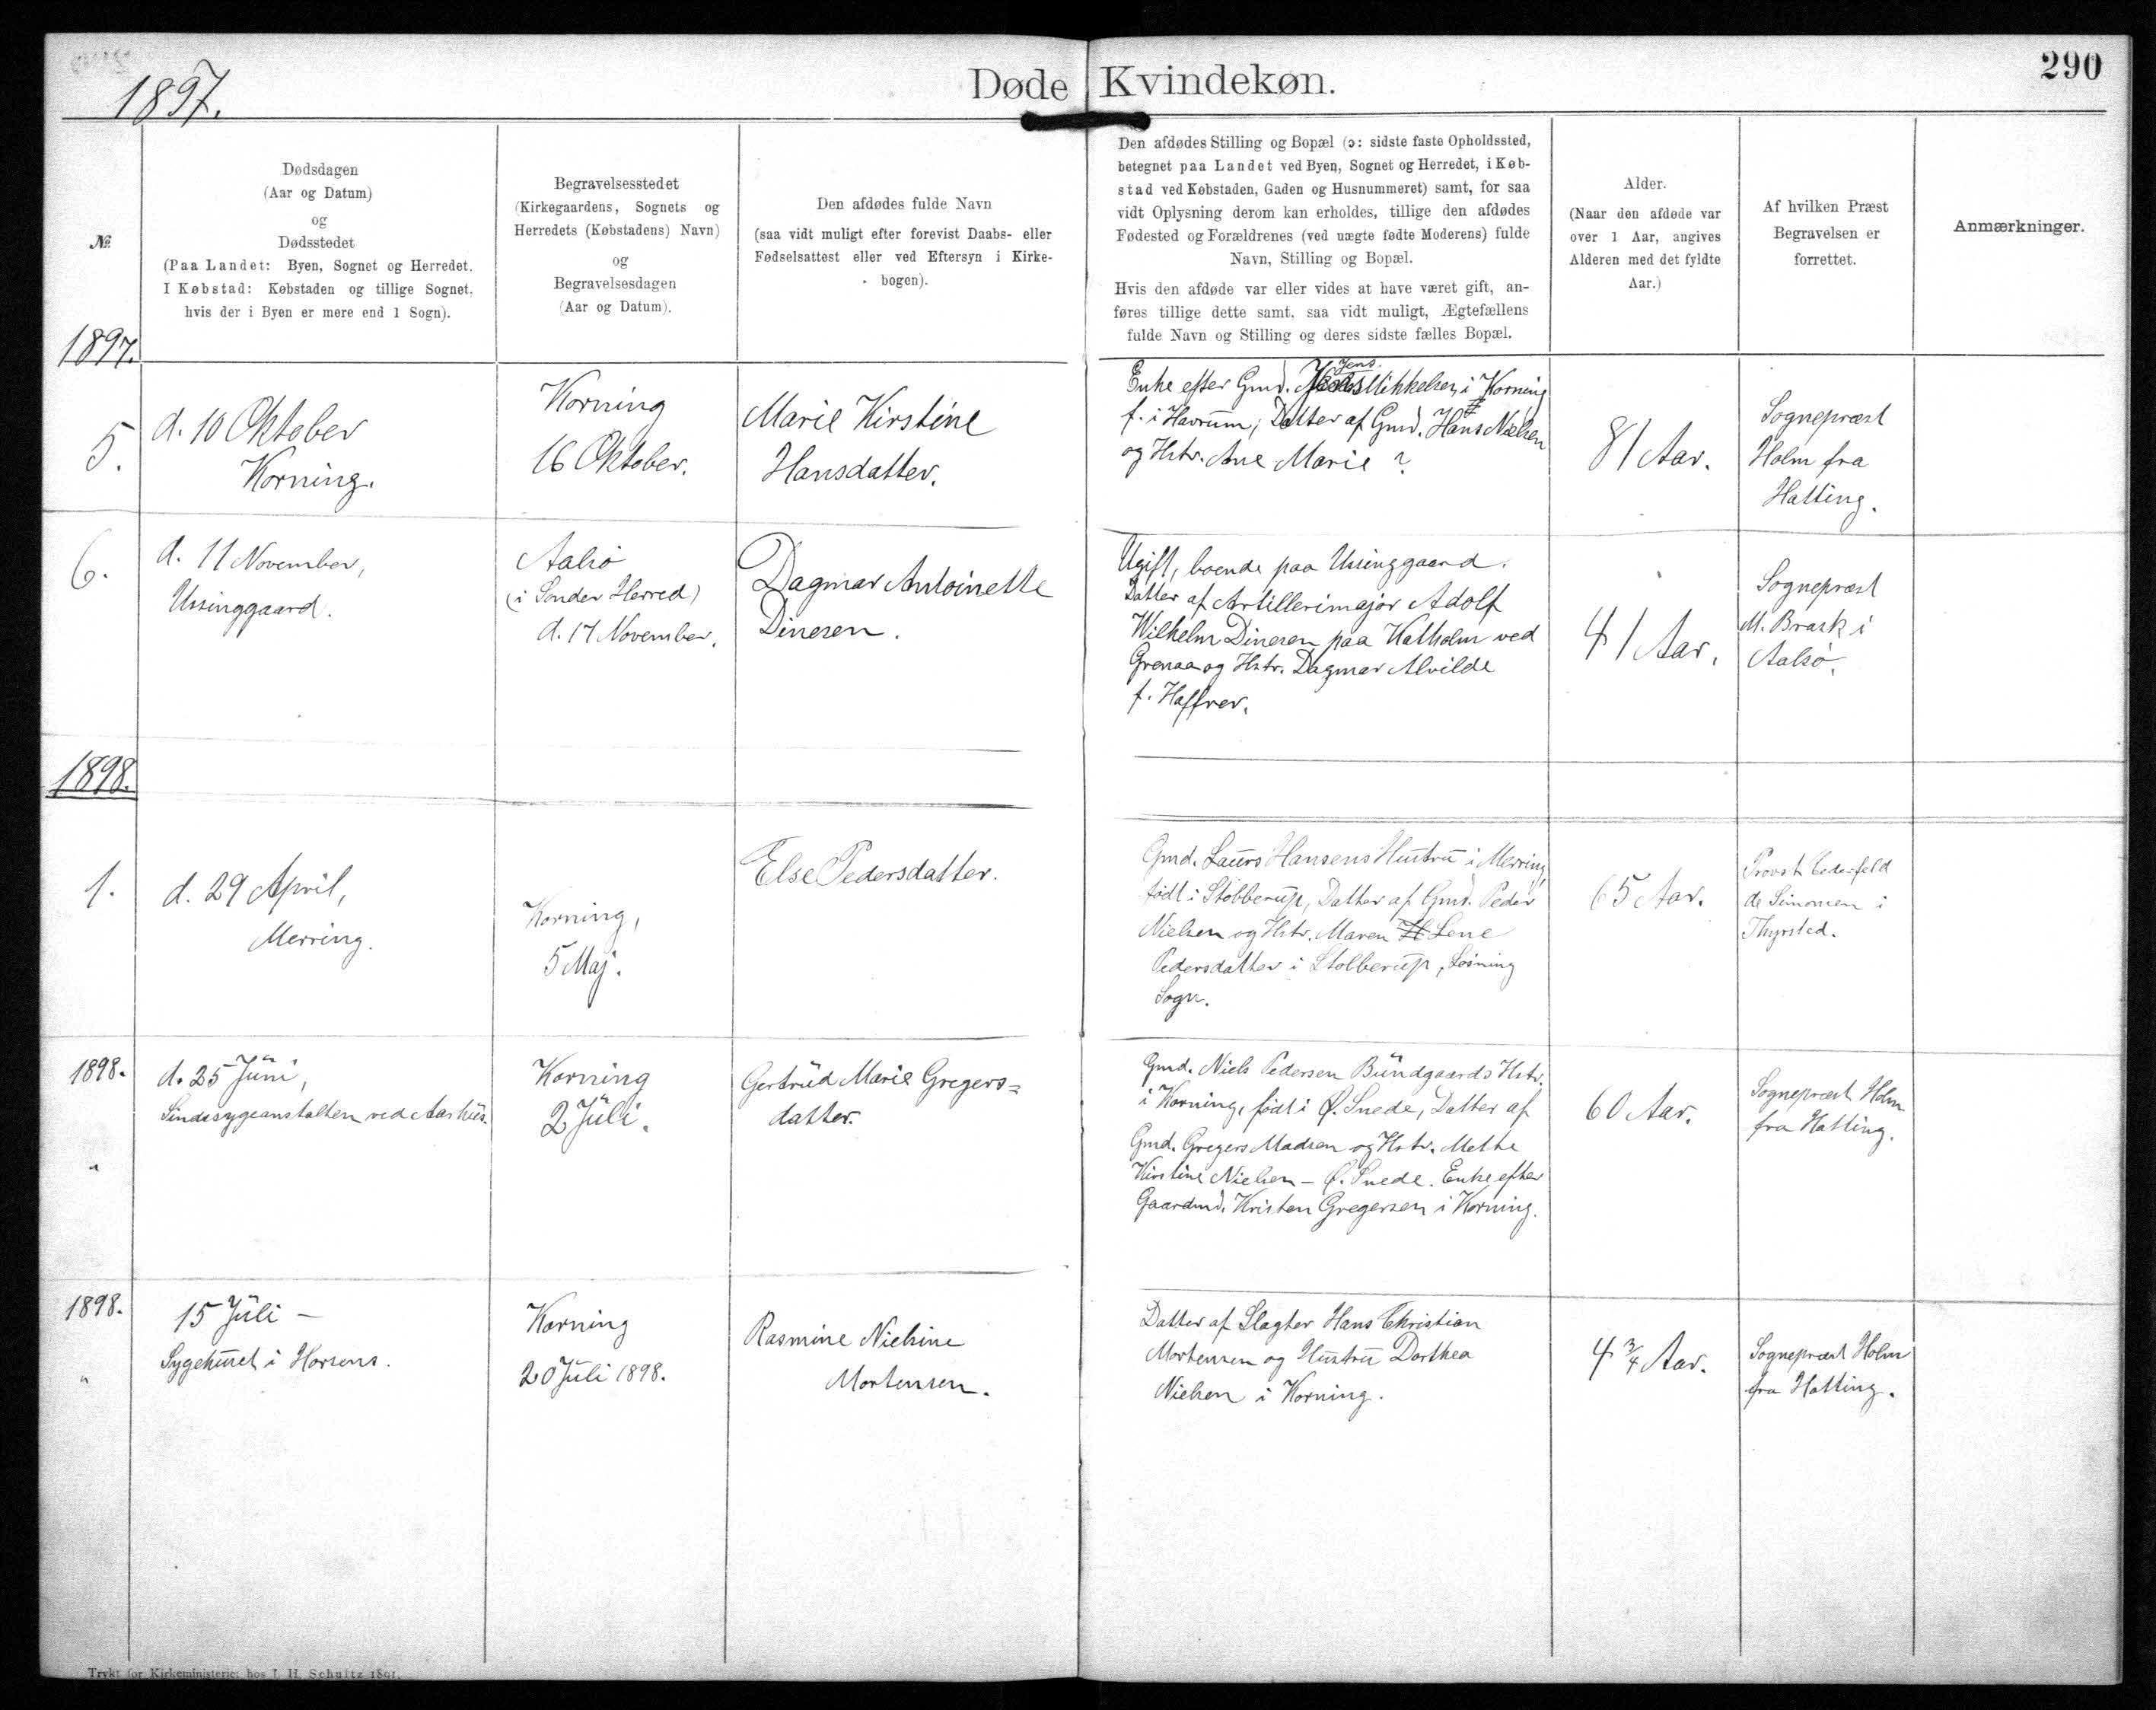 1897.
Døde Kvindekøn.
290
№
Dødsdagen
(Aar og Datum)
og
Dødsstedet
(Paa Landet: Byen, Sognet og Herredet.
I Købstad: Købstaden og tillige Sognet.
hvis der i Byen er mere end 1 Sogn).
Begravelsesstedet
(Kirkegaardens, Sognets og
Herredets (Købstadens) Navn)
og
Begravelsesdagen
(Aar og Datum).
Den afdødes fulde Navn
(saa vidt muligt efter forevist Daabs- eller
Fødselsattest eller ved Eftersyn i Kirke-
bogen).
Den afdødes Stilling og Bopæl (ɔ: sidste faste Opholdssted,
betegnet paa Landet ved Byen, Sognet og Herredet, i Køb-
stad ved Købstaden, Gaden og Husnummeret) samt, for saa
vidt Oplysning derom kan erholdes, tillige den afdødes
Fødested og Forældrenes (ved uægte fødte Moderens) fulde
Navn, Stilling og Bopæl.
Hvis den afdøde var eller vides at have været gift, an-
føres tillige dette samt, saa vidt muligt, Ægtefællens
fulde Navn og Stilling og deres sidste fælles Bopæl.
Alder.
(Naar den afdøde var
over 1 Aar, angives
Alderen med det fyldte
Aar.)
Af hvilken Præst
Begravelsen er
forrettet.
Anmærkninger.
1897.
5.
d. 10 Oktober
Korning.
Korning
16 Oktober.
Marie Kirstine
Hansdatter.
Jens
Enke efter Gmd. Mikkelsen i Korning
f. i Havrum; Datter af Gmd. Hans Nielsen
og Hstr. Ane Marie ?
81 Aar.
Sognepræst
Holm fra
Hatting.
6.
d. 11 November,
Ussinggaard.
Aalsø
(i Sønder Herred)
d. 17 November.
Dagmar Antoinette
Dinesen.
Ugift, boende paa Ussinggaard.
Datter af Artillerimajor Adolf
Wilhelm Dinesen paa Katholm ved
Grenaa og Hstr. Dagmar Alvilde
f. Haffner.
41 Aar.
Sognepræst
M. Brask i
Aalsø.
1898.
1.
d. 29 April,
Merring.
Korning,
5 Maj.
Else Pedersdatter.
Gmd. Laurs Hansens Hustru i Merring,
født i Stobberup, Datter af Gmd. Peder
Nielsen og Hstr. Maren Lene
Pedersdatter i Stobberup, Løsning
Sogn.
65 Aar.
Provst Cederfeld
de Simonsen i
Thyrsted.
1898.
"
d. 25 Juni,
Sindssygeanstalten ved Aarhus.
Korning
2 Juli.
Gertrud Marie Gregers=
datter.
Gmd. Niels Pedersen Bundgaards Hstr.
i Korning, født i Ø. Snede, Datter af
Gmd. Gregers Madsen og Hstr. Mette
Kirstine Nielsen – Ø. Snede. Enke efter
Gaardmd. Kristen Gregersen i Korning.
60 Aar.
Sognepræst Holm
fra Hatting.
1898.
"
15 Juli –
Sygehuset i Horsens.
Korning
20 Juli 1898.
Rasmine Nielsine
Mortensen.
Datter af Slagter Hans Christian
Mortensen og Hustru Dorthea
Nielsen i Korning.
4 3/4 Aar.
Sognepræst Holm
fra Hatting.
Trykt for Kirkeministeriet hos J. H. Schultz 1891.